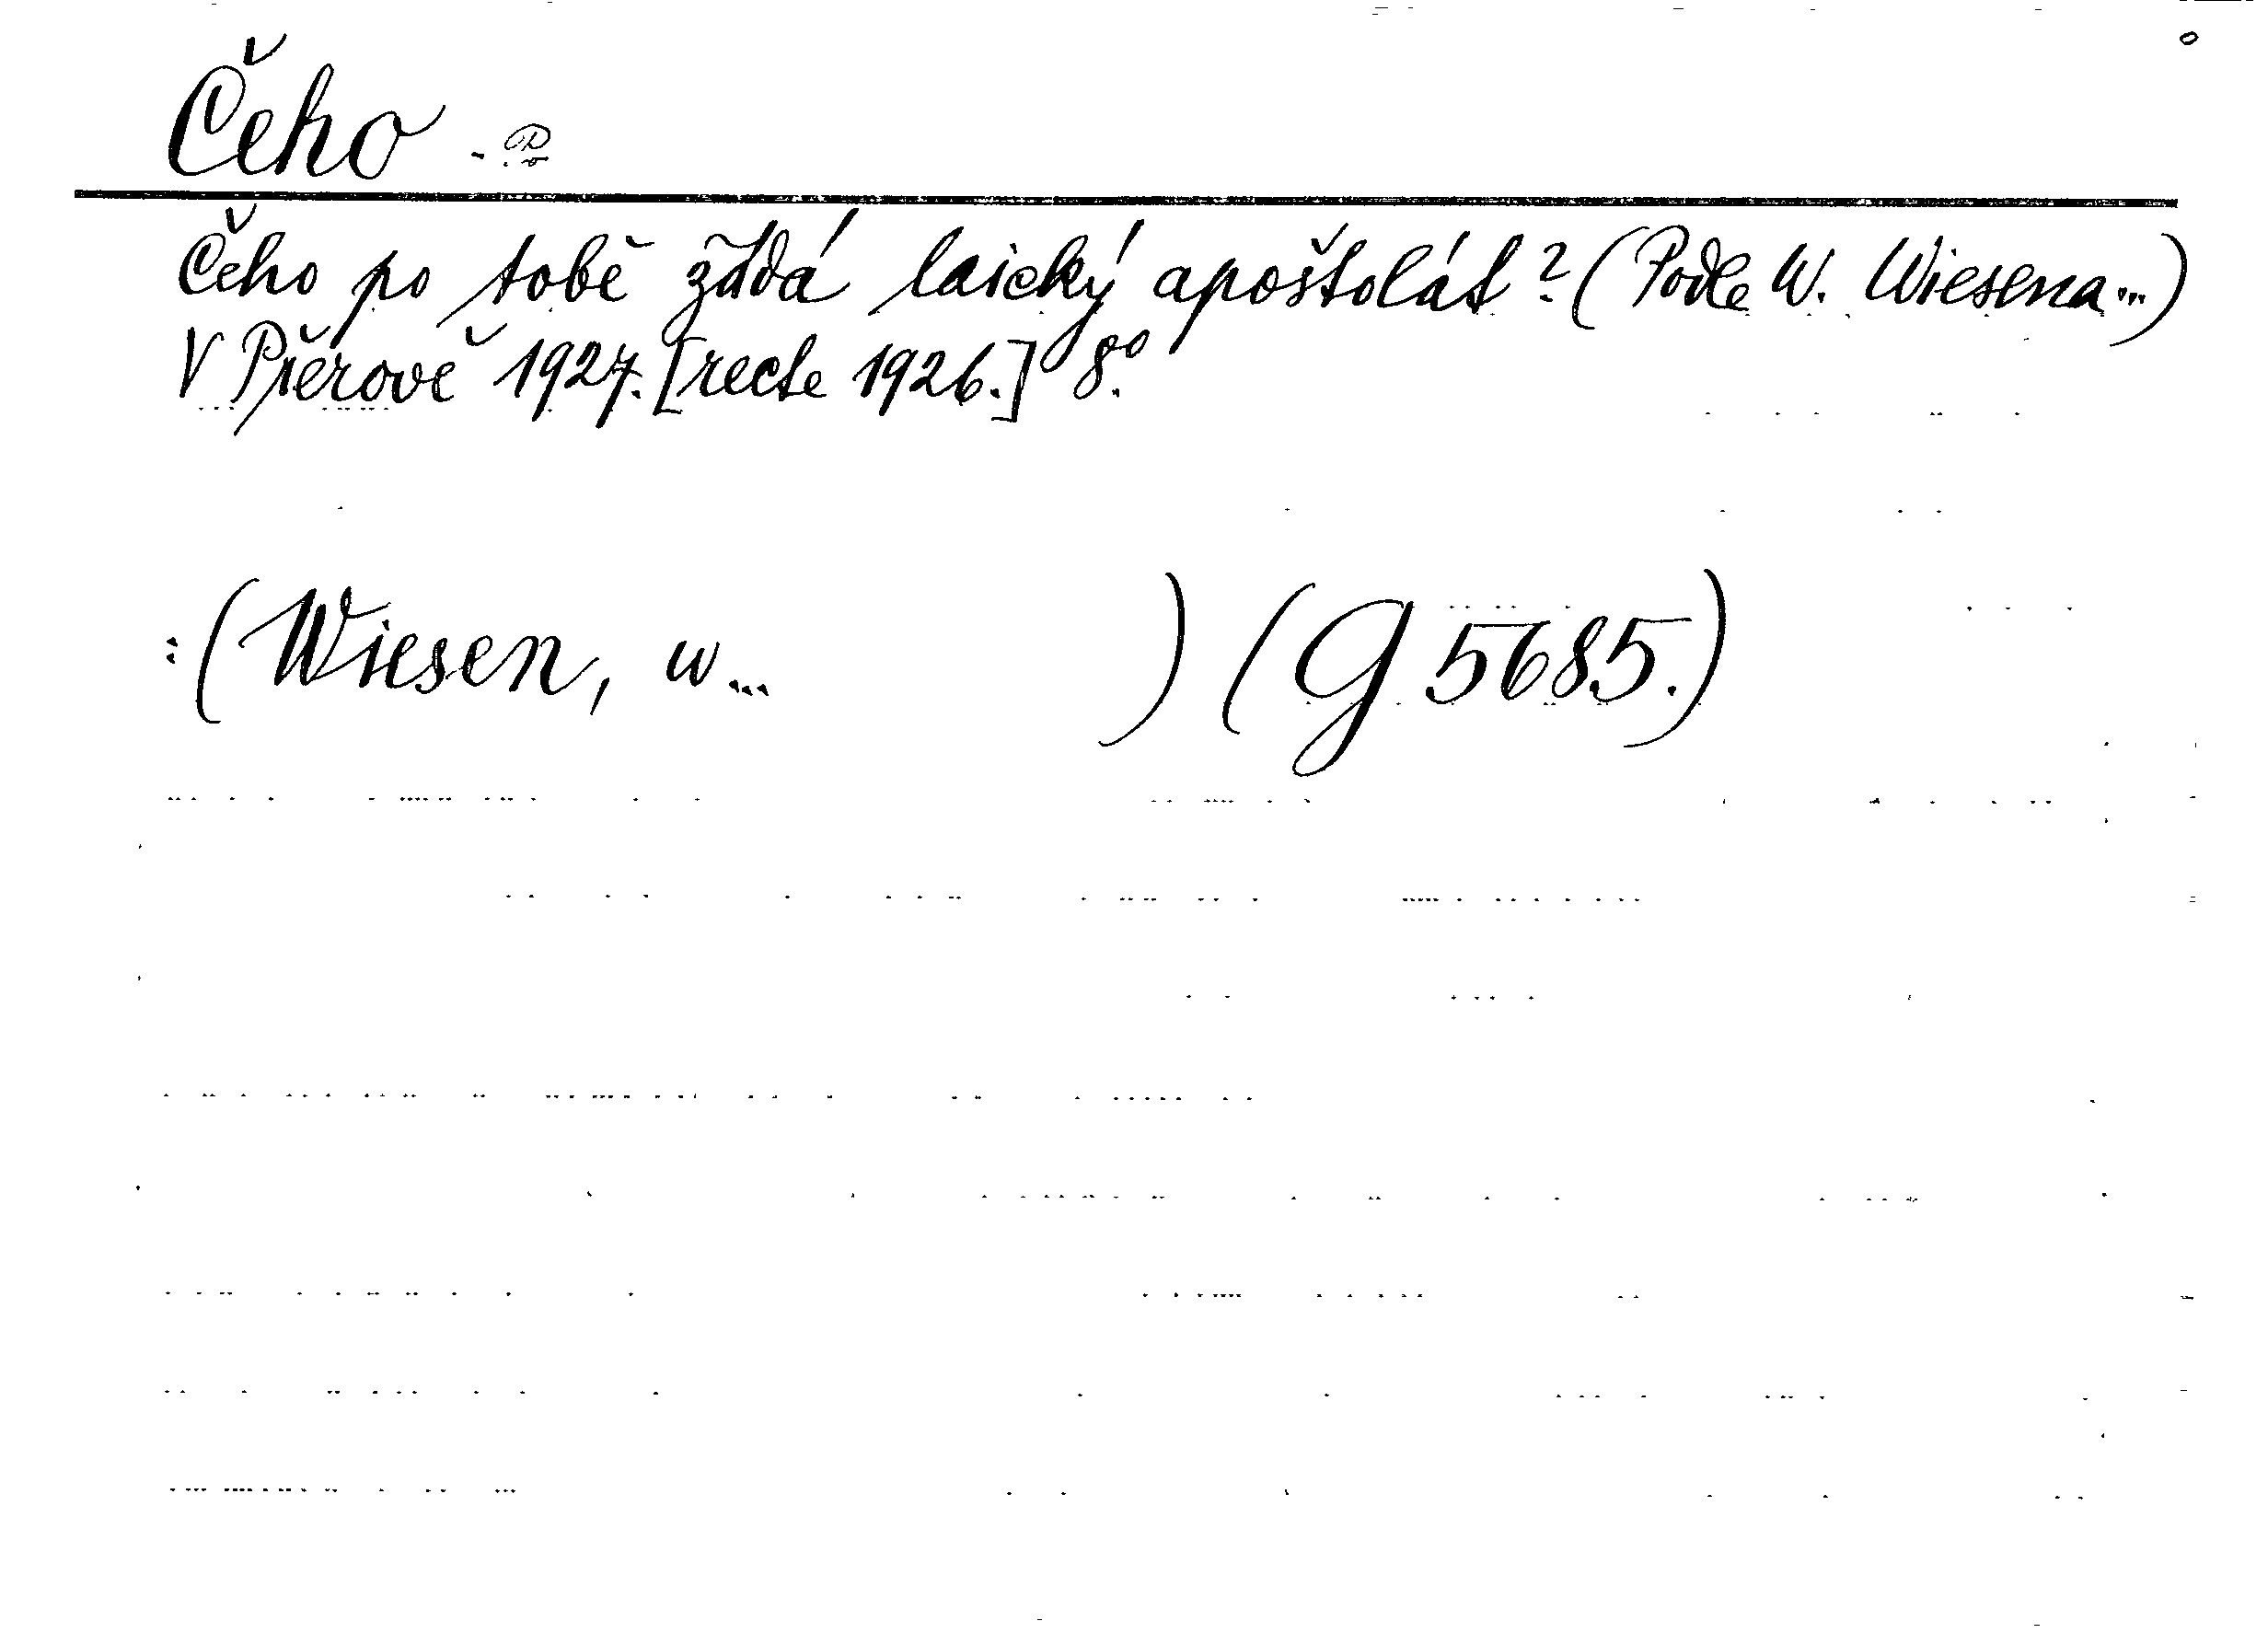 Čeho - Po
Čeho po tobě žádá laický apoštolát? (Podle W. Wiesena...)
V Přerově 1927. [recte 1926.] 8.°
: (Wiesen, W... ) (G 5685.)